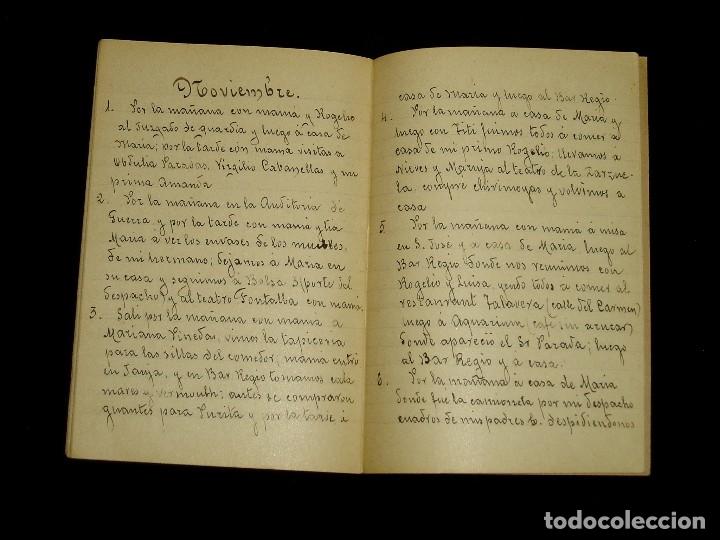 Noviembre.
1. Por la mañana con mamá y Rogelio
al Juzgado de guardia y luego á casa de
María; por la tarde con mamá visitas a
Obdulia Paradas, Virgilio Cabanellas y mi
prima Amanda
2. Por la mañana en la Auditoría de
Guerra y por la tarde con mamá y tía
María á ver los envases de los muebles
de mi hermano; dejamos á María en
su casa y seguimos á Bolsa 3 (porte del
despacho) y al teatro Fontalba con mamá
3. Salí por la mañana con mamá a
Mariana Pineda, vimos la tapicería
para las sillas del comedor; mamá entró
en Janja, y en Bar Regio tomamos cala
mares y vermouth; antes se compraron
guantes para Purita y por la tarde á
casa de María y luego al Bar Regio
4. Por la mañana a casa de María y
luego con Titi fuimos todos á comer a
casa de mi primo Rogelio; llevamos a
Nieves y Maruja al teatro de la Zarzue-
la. compre chirimoyas y volvimos a
casa
5. Por la mañana con mamá á misa
en S. José y a casa de María luego al
Bar Regio donde nos reunimos con
Rogelio y Luisa, yendo todos a comer al
restaurant Talavera (calle del Carmen)
luego á Aquarium (café sin azucar)
donde apareció el Sr Parada; luego
al Bar Regio y a casa.
6. Por la mañana á casa de María
donde fue la camioneta por mi despacho
cuadros de mis padres &. despidiendonos
todocoleccion
todocoleccion.net